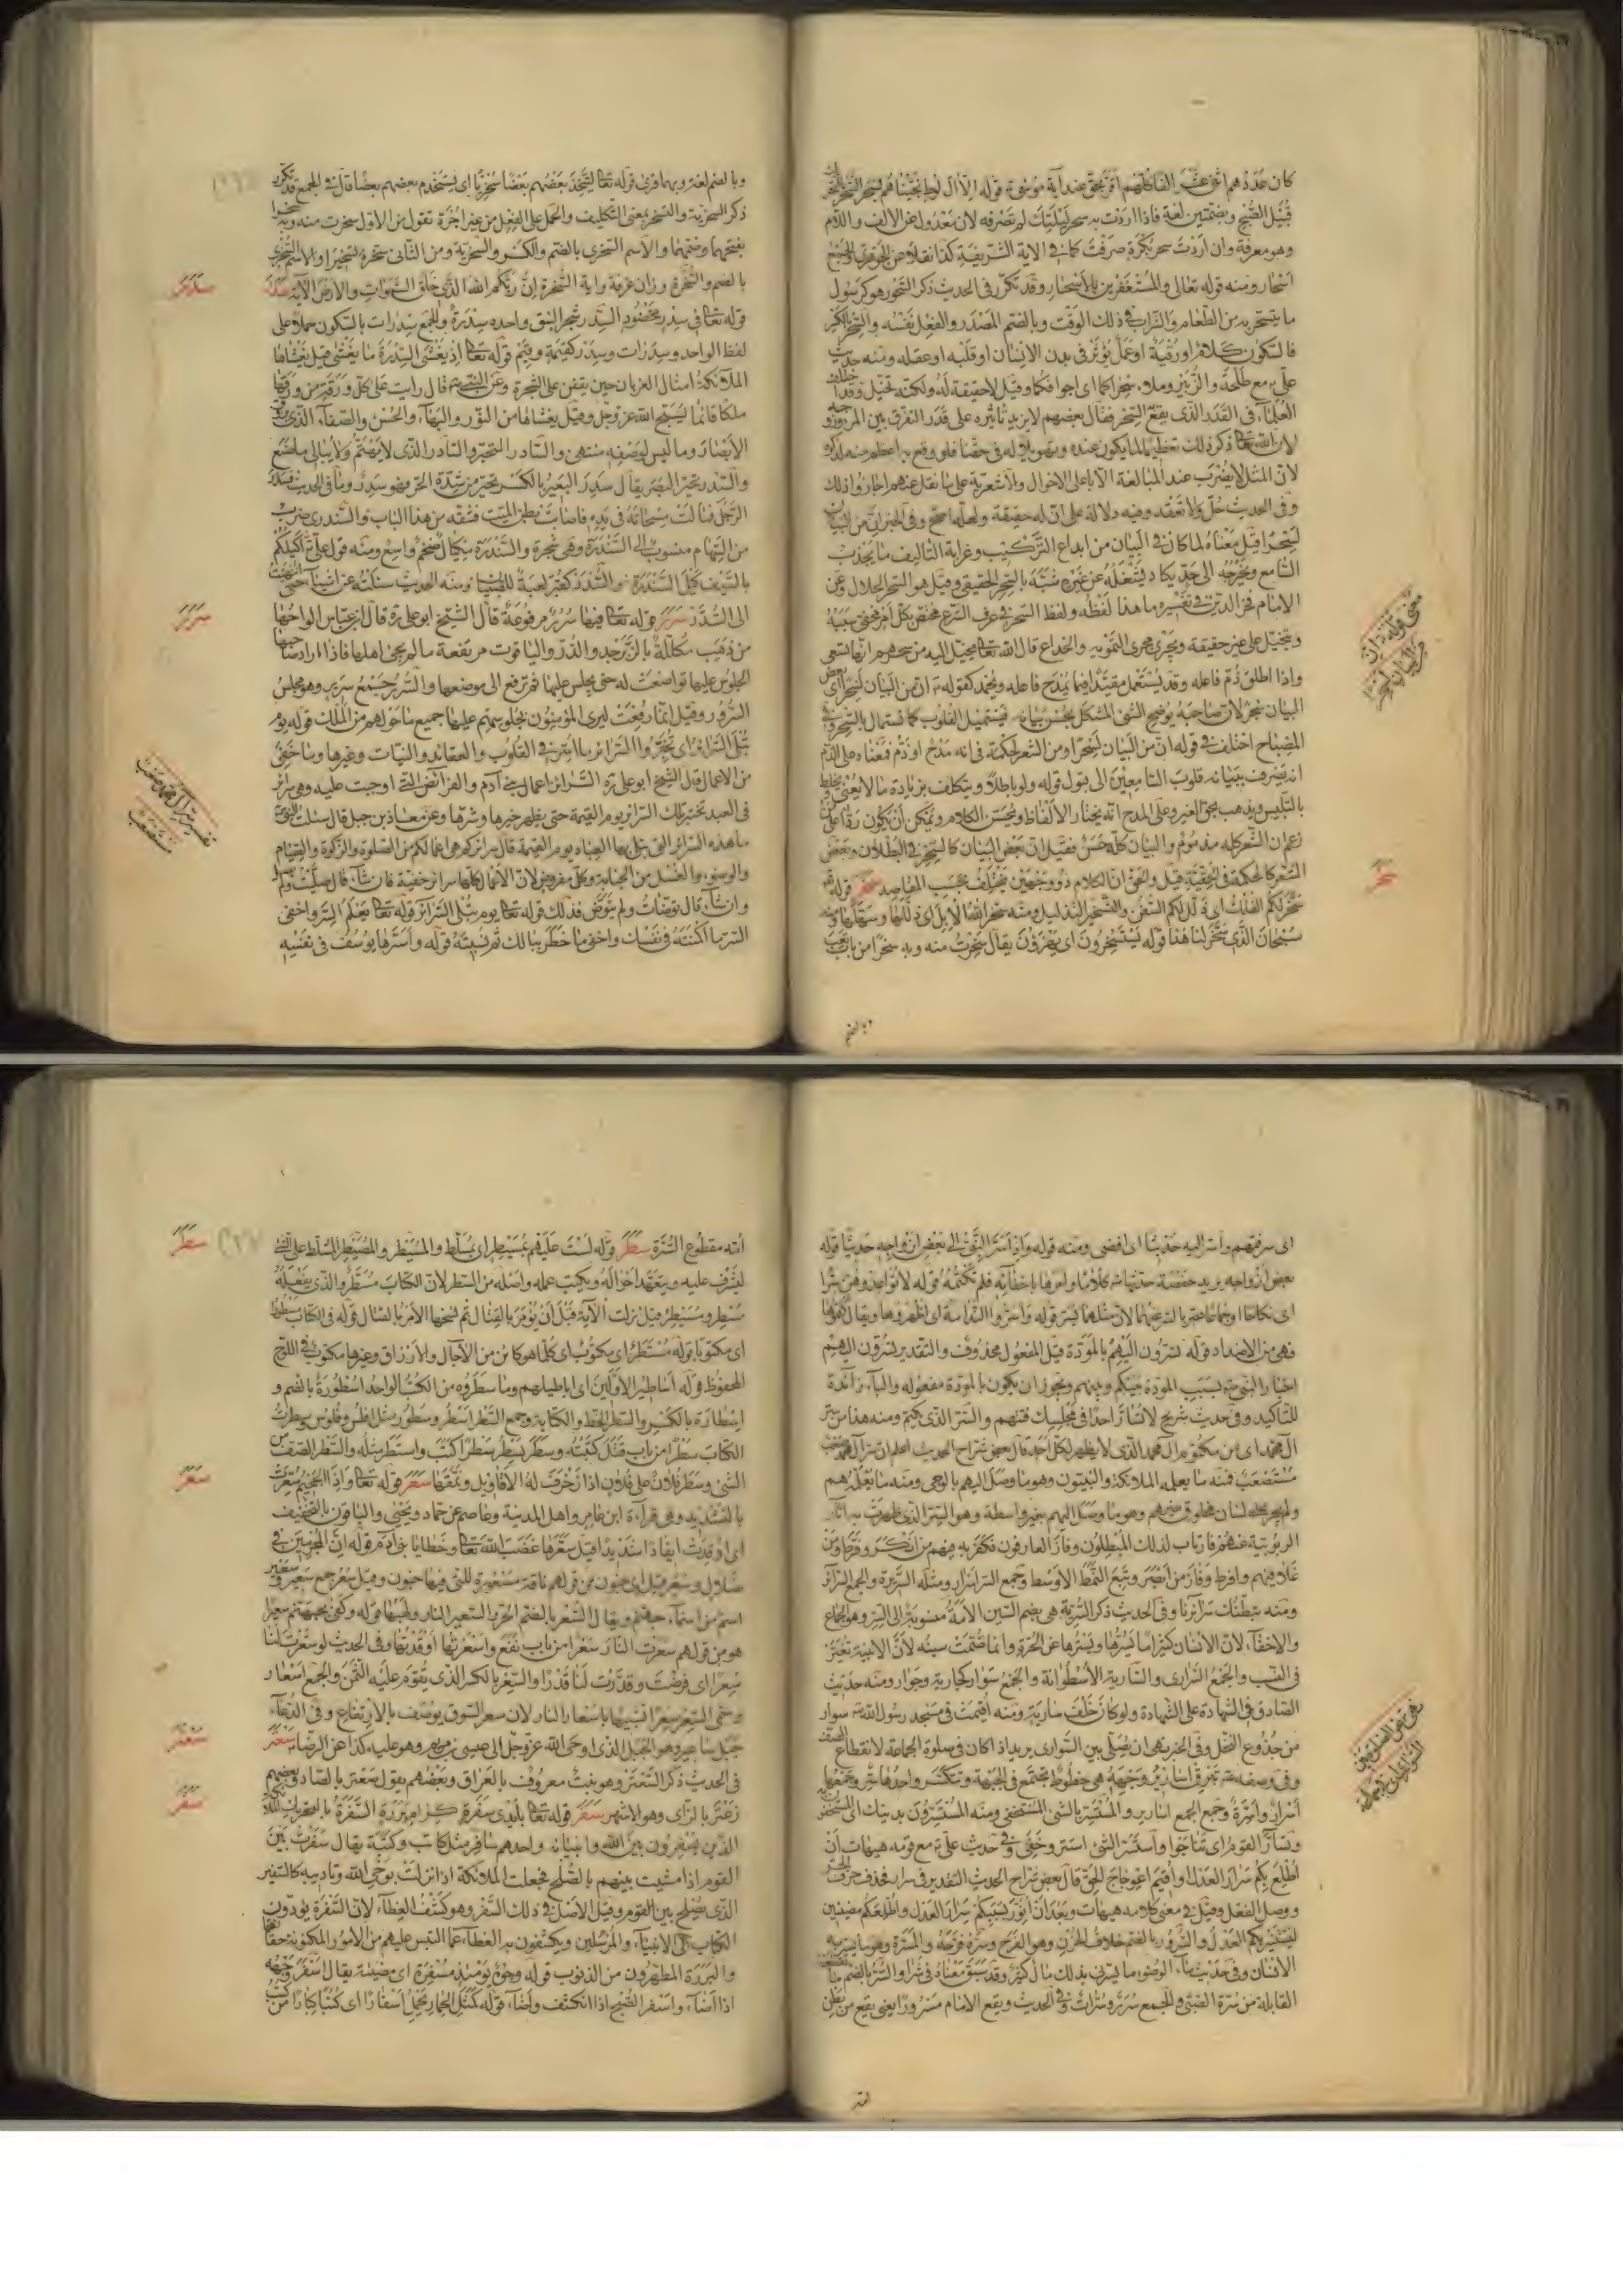 كان عددهم اثنى عشر الفا كلهم اقر بحق عند آية موسى قوله الا آل لوط نجيناهم بسحر السحر
قبيل الصبح وبضمتين لغة فاذا اردت به سحر ليلتك لم تصرفه لانه معدول عن الالف واللام
وهو معرفة وان اردت سحر نكرة صرفت كما في الاية الشريفة كذا نقلا عن الجوهري والجمع
اسحار ومنه قوله تعالى والمستغفرين بالاسحار وقد تكرر في الحديث ذكر السحور هو كرسول
ما يتسحر به من الطعام والشراب في ذلك الوقت وبالضم المصدر والفعل نفسه والسحر بالكسر
فالسكون كلام او رقية او عمل يؤثر في بدن الانسان او قلبه او عقله ومنه حديث
علي مع طلحة والزبير
العلماء في القدر الذي يقع به السحر فقال بعضهم لا يزيد تاثيره على قدر التفرق بين المرء وزوجه
لان الله تعالى ذكر ذلك تعظيما لما يكون عنده وتهويلا له في حقنا فلو وقع به اعظم منه لذكره
لان المثل لا يضرب عند المبالغة الا باعلى الاحوال والاشعرية على ما نقل عنهم اجازوا ذلك
وفي الحديث حل ولا تعقد وفيه دلالة على ان له حقيقة ولعلها صح وفي الخبر ان من البيان
لسحرا قيل معناه لما كان في البيان من ابداع التركيب وغرابة التاليف ما يجذب
السامع ويخرجه الى حد يكاد يشغله عن غيره شبه بالسحر الحقيقي وقيل هو السحر الحلال وعن
الامام فخر الدين في تفسيره ما هذا لفظه ولفظ السحر في عرف الشرع مختص بكل امر مخفي سببه
ويتخيل على غير حقيقة ويجري مجرى التمويه والخداع قال الله تعالى يخيل اليه من سحرهم انها تسعى
واذا اطلق ذم فاعله وقد يستعمل مقيدا فيما يمدح فاعله ويحمد كقوله ان من البيان لسحرا اي بعض
البيان سحر لان صاحبه يوضح الشئ المشكل بحسن بيانه فيستميل القلوب كما تستمال بالسحر وفي
المصباح اختلف في قوله ان من البيان لسحرا ومن الشعر لحكمة في انه مدح او ذم فمعناه على الذم
انه يصرف ببيانه قلوب السامعين الى قبول قوله ولو باطلا ويتكلف بزيادة ما لا يعني يخلط
بالتلبيس ويذهب بحق الغير وعلى المدح انه يختار الالفاظ ويحسن الكلام ويمكن ان يكون ردا على من
زعم ان الشعر كله مذموم والبيان كله حسن فقيل ان بعض البيان كالسحر في البطلان وبعض
الشعر كالحكمة في الحقيقة قيل والحق ان الكلام ذو وجهين يختلف بحسب المقاصد سخر قوله
سخر لكم الفلك اي ذلل لكم السفن والتسخير التذليل ومنه سخر الله الابل اي ذللها وسهلها ومنه
سبحان الذي سخر لنا هذا قوله يستسخرون اي يهزؤن يقال سخرت منه وبه سخرا من باب تعب
معنى قوله ان
من البيان لسحرا
سخر
وبالضم
وبالضم لغة وبهما قرئ قوله تعالى ليتخذ بعضهم بعضا سخريا اي يستخدم بعضهم بعضا قال في المجمع قد تكرر
ذكر السخرية والتسخير بمعنى التكليف والحمل على الفعل من غير اجرة تقول من الاول سخرت منه وبه سخرا
بفتحهما وضمهما والاسم السخري بالضم والكسر والسخرية ومن الثاني سخره تسخيرا والاسم السخري
بالضم والسخرة وزان غرفة واية السخرة ان ربكم الله الذي خلق السموات والارض الآية سدر
قوله تعالى في سدر مخضود السدر شجر النبق واحده سدرة والجمع سدرات بالسكون حملا على
لفظ الواحد وسدرات وسدر كقيمة وقيم قوله تعالى اذ يغشى السدرة ما يغشى قيل يغشاها
الملائكة امثال الغربان حين يقعن على الشجرة وعن النبي قال رايت على كل ورقة من ورقها
ملكا قائما يسبح الله عز وجل وقيل يغشاها من النور والبهاء والحسن والصفاء الذي يروق
الابصار وما ليس لوصفه منتهى والسادر المتحير والسادر الذي لا يهتم ولا يبالي ما صنع
والسدر تحير البصر يقال سدر البعير بالكسر تحير من شدة الحر فهو سدر وما في الحديث
الرجل فمالت مسحاته في يده فاصابت بطن الميت فشقه من هذا الباب والسندري ضرب
من السهام منسوب الى السندرة وهي شجرة والسندرة مكيال ضخم واسع ومنه قول علي اكيلكم
بالسيف كيل السندرة والسدر كقبر لعبة للصبيان ومنه الحديث سئلته عن اشياء حتى انتهيت
الى السدر سرر قوله تعالى فيها سرر مرفوعة قال الشيخ ابو علي ره قال ابن عباس الواحها
من ذهب مكللة بالزبرجد والدر والياقوت مرتفعة ما لم يجئ اهلها فاذا اراد صاحبها
الجلوس عليها تواضعت له حتى يجلس عليها ثم ترفع الى موضعها والسرر جمع سرير وهو مجلس
السرور وقيل انما رفعت ليرى المؤمنون بجلوسهم عليها جميع ما حولهم من الملك قوله يوم
تبلى السرائر اي تختبر والسرائر ما اسر في القلوب والعقائد والنيات وغيرها وما خفي
من الاعمال قال الشيخ ابو علي ره السرائر اعمال بني آدم والفرائض التي اوجبت عليه وهي سرائر
في العبد تختبر تلك السرائر يوم القيمة حتى يظهر خيرها وشرها وعن معاذ بن جبل قال سئلت النبي
ما هذه السرائر التي تبلى بها العباد يوم القيمة قال سرائركم هي اعمالكم من الصلوة والزكوة والصيام
والوضوء والغسل من الجنابة وكل مفروض لان الاعمال كلها سرائر خفية فان شاء قال صليت ولم يصل
وان شاء قال توضات ولم يتوض فذلك قوله تعالى يوم تبلى السرائر قوله تعالى يعلم السر واخفى
السر ما اكننته في نفسك واخفى ما خطر ببالك ثم نسيته قوله واسرها يوسف في نفسه
سدر
سرر
تفسير سر آل محمد صعب
مستصعب
اي سرقتهم واسر اليه حديثا اي افضى ومنه قوله واذ اسر النبي الى بعض ازواجه حديثا قوله
بعض ازواجه يريد حفصة حدثها كلاما وامرها باخفائه فلم تكتمه قوله لا تواعدوهن سرا
اي نكاحا او جماعا عبر بالسر عنهما لان مثلهما يسر قوله واسروا الندامة اي اظهروها ويقال كتموها
فهي من الاضداد قوله تسرون اليهم بالمودة قيل المفعول محذوف والتقدير تسرون اليهم
اخبار النبي بسبب المودة بينكم وبينهم ويجوز ان يكون بالمودة مفعوله والباء زائدة
للتاكيد وفي حديث شريح لا تسار احدا في مجلسك فتتهم والسر الذي يكتم ومنه هذا من سر
آل محمد اي من مكتوم آل محمد الذي لا يظهر لكل احد قال بعض شراح الحديث اعلم ان سر آل محمد صعب
مستصعب فمنه ما يعلمه الملائكة والنبيون وهو ما وصل اليهم بالوحي ومنه ما يعلمه هم
ولم يجر على لسان مخلوق غيرهم وهو ما وصل اليهم بغير واسطة وهو السر الذي ظهرت به اثار
الربوبية عنهم فارتاب لذلك المبطلون وفاز العارفون فكفر به فيهم من انكر وفرط ومن
غلا فيهم وافرط وفاز من ابصر وتبع النمط الاوسط وجمع السر اسرار ومثله السريرة والجمع السرائر
ومنه تبطنك سرائرنا وفي الحديث ذكر السرية هي بضم السين الامة منسوبة الى السر وهو الجماع
والاخفاء لان الانسان كثيرا ما يسرها ويسترها عن الحرة وانما ضمت سينه لان الابنية تغير
في النسب والجمع السراري والسارية الاسطوانة والجمع سوار كجارية وجوار ومنه حديث
الصادق في الشهادة على الشهادة ولو كان خلف سارية ومنه اقيمت في مسجد رسول الله سوار
من جذوع النخل وفي الخبر نهى ان يصلى بين السواري يريد اذا كان في صلوة الجماعة لانقطاع الصف
وفي وصفه تبرق اسارير وجهه هي خطوط تجتمع في الجبهة وتتكسر واحدها سر وجمعها
اسرار واسرة وجمع الجمع اسارير والمستسر بالشئ المستخفي ومنه المستسرون بدينك اي المستخفون
وتسار القوم اي تناجوا واستسر الشئ استتر وخفي وفي حديث علي مع قومه هيهات ان
اطلع بكم سرار العدل او اقيم اعوجاج الحق قال بعض شراح الحديث التقدير في سرار فحذف حرف الجر
ووصل الفعل وقيل في معنى كلامه هيهات وبعد ان انور بسببكم سرار العدل واطلعكم مضيئين
ليستنير بكم العدل والسرور بالضم خلاف الحزن وهو الفرح وسره فرحه والمسرة وهو ما يسر به
الانسان وفي حديث ماء الوضوء ما يسرني بذلك مال كثير وقد سبق معناه في شرا والسر بالضم ما تقطعه
القابلة من سرة الصبي والجمع سرر وسرات وفي الحديث ويقع الامام مسرورا يعني يقع من بطن
نهى عن الصلوة بين
السواري
امه
امه مقطوع السرة سطر قوله لست عليهم بمسيطر اي بمسلط والمسيطر والمصيطر المسلط على الشئ
ليشرف عليه ويتعهد احواله ويكتب عمله واصله من السطر لان الكتاب مسطر والذي يفعله
مسطر ومسيطر قيل نزلت الآية قبل ان يؤمر بالقتال ثم نسخها الامر بالقتال قوله في الكتاب مسطورا
اي مكتوبا قوله مستطر اي مكتوب اي كلما هو كائن من الآجال والارزاق وغيرها مكتوب في اللوح
المحفوظ قوله اساطير الاولين اي اباطيلهم وما سطروه من الكتب الواحد اسطورة بالضم و
اسطارة بالكسر والسطر الخط والكتابة وجمع السطر اسطر وسطور مثل افلس وفلوس وسطرت
الكتاب سطرا من باب قتل كتبته وسطر يسطر سطرا كتب واستطر مثله والسطر الصف من
الشئ وسطر فلان على فلان اذا زخرف له الاقاويل ونمقها سعر قوله تعالى واذا الجحيم سعرت
بالتشديد وهي قراءة ابن عامر واهل المدينة وعاصم عن حماد ويحيى والباقون بالتخفيف
اي اوقدت ايقادا شديدا قيل سعرها غضب الله تعالى وخطايا بني آدم قوله ان المجرمين في
ضلال وسعر قيل اي جنون من قولهم ناقة مسعورة للتي فيها جنون وقيل سعر جمع سعير وسعير
اسم من اسماء جهنم ويقال السعر بالضم الحر والسعير النار ولهبها قوله وكفى بجهنم سعيرا
هو من قولهم سعرت النار سعرا من باب نفع واسعرتها اوقدتها وفي الحديث لو سعرت لنا
سعرا اي فرضت وقدرت لنا قدرا والسعر بالكسر الذي يقوم عليه الثمن والجمع اسعار
وسمي السعر سعرا تشبيها باسعار النار لان سعر السوق يوصف بالارتفاع وفي الدعاء
جبل ساعير وهو الجبل الذي اوحى الله عز وجل الى عيسى بن مريم وهو عليه كذا عن الرضا سعتر
في الحديث ذكر السعتر وهو نبت معروف بالعراق وبعضهم يقول سعتر بالصاد وبعضهم
زعتر بالزاى وهو الاشهر سفر قوله تعالى بايدي سفرة كرام بررة السفرة بالتحريك الملائكة
الذين يسفرون بين الله وانبيائه واحدهم سافر مثل كاتب وكتبة يقال سفرت بين
القوم اذا مشيت بينهم بالصلح فجعلت الملائكة اذا نزلت بوحي الله وتاديبه كالسفير
الذي يصلح بين القوم وقيل الاصل في ذلك السفر وهو كشف الغطاء لان السفرة يؤدون
الكتاب الى الانبياء والمرسلين ويكشفون به الغطاء عما التبس عليهم من الامور المكنونة حقائقها
والبررة المطهرون من الذنوب قوله وجوه يومئذ مسفرة اي مضيئة يقال اسفر وجهه
اذا اضاء واسفر الصبح اذا انكشف واضاء قوله كمثل الحمار يحمل اسفارا اي كتبا كبارا من كتب
سطر
سعر
سعتر
سفر